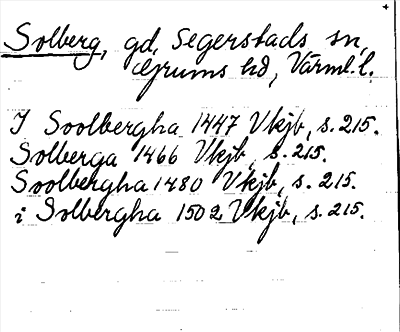 Solberg, gd, Segerstads sn,
Grums hd, Värml. l.
I Soolbergha 1447 Vkjb, s. 215.
Solberga 1466 Vkjb, s. 215.
Soolbergha 1480 Vkjb, s. 215.
i Solbergha 1502 Vkjb, s. 215.